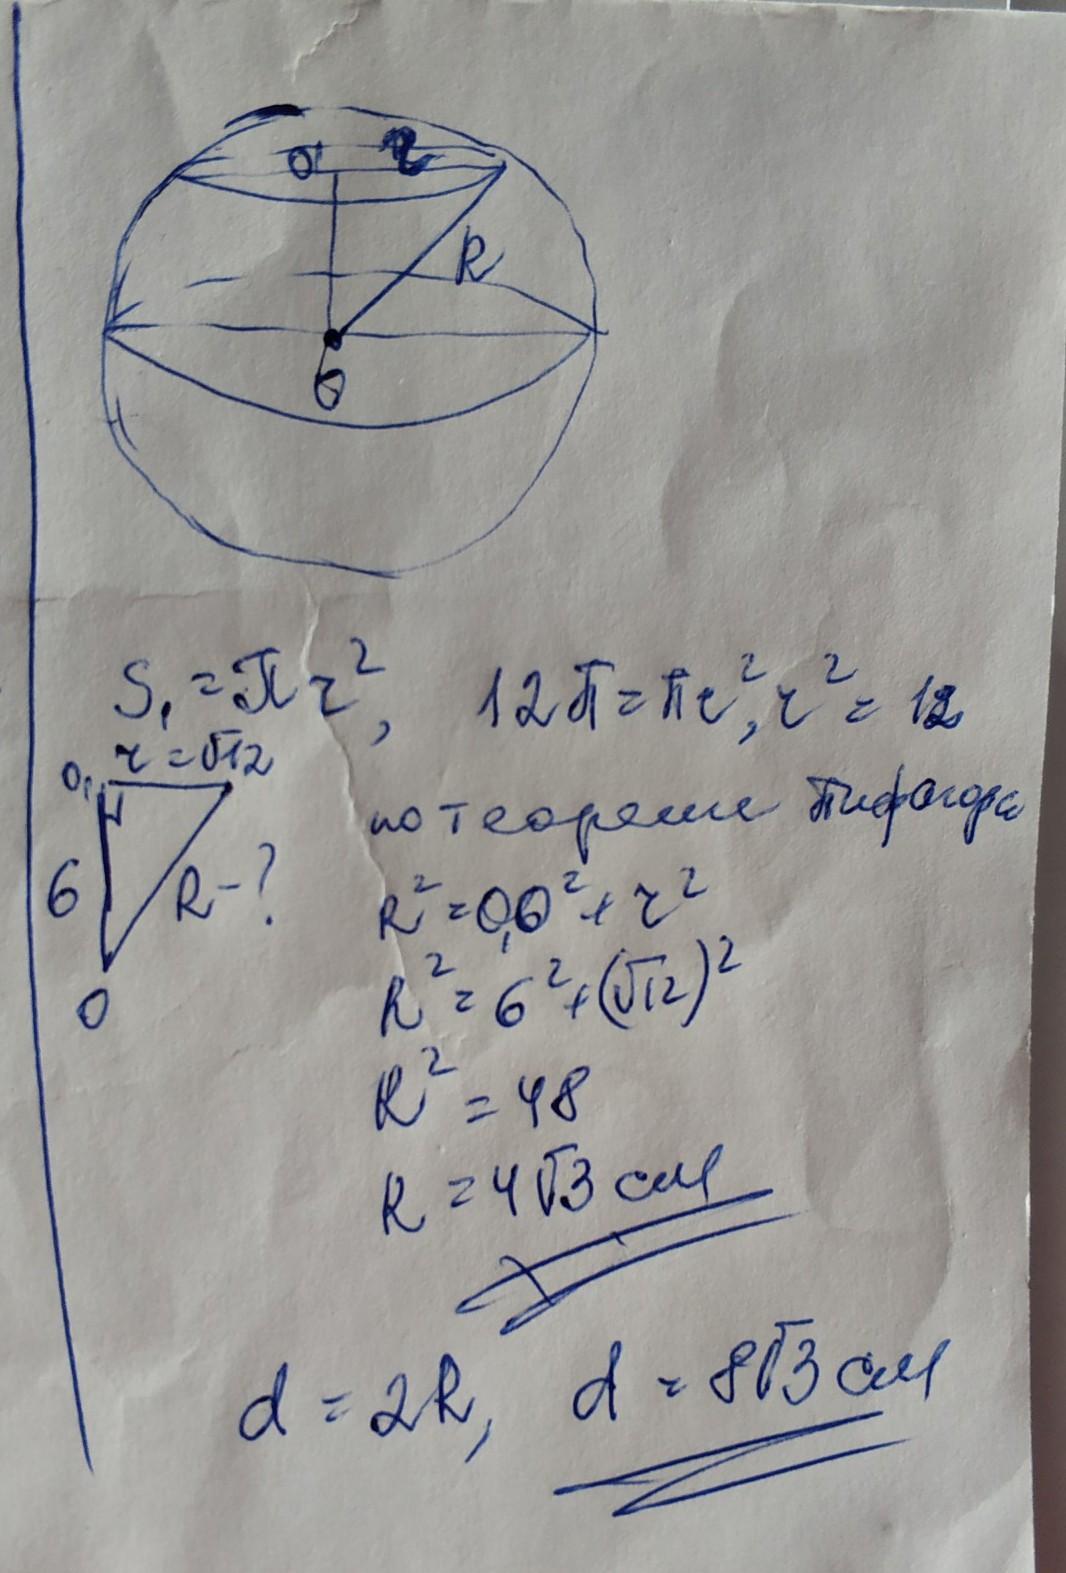 O' r
R
O
S₁ = πr², 12π = πr², r² = 12
r = √12
O₁
6 R - ?
O
по теореме Пифагора
R² = O₁O² + r²
R² = 6² + (√12)²
R² = 48
R = 4√3 см
d = 2R, d = 8√3 см